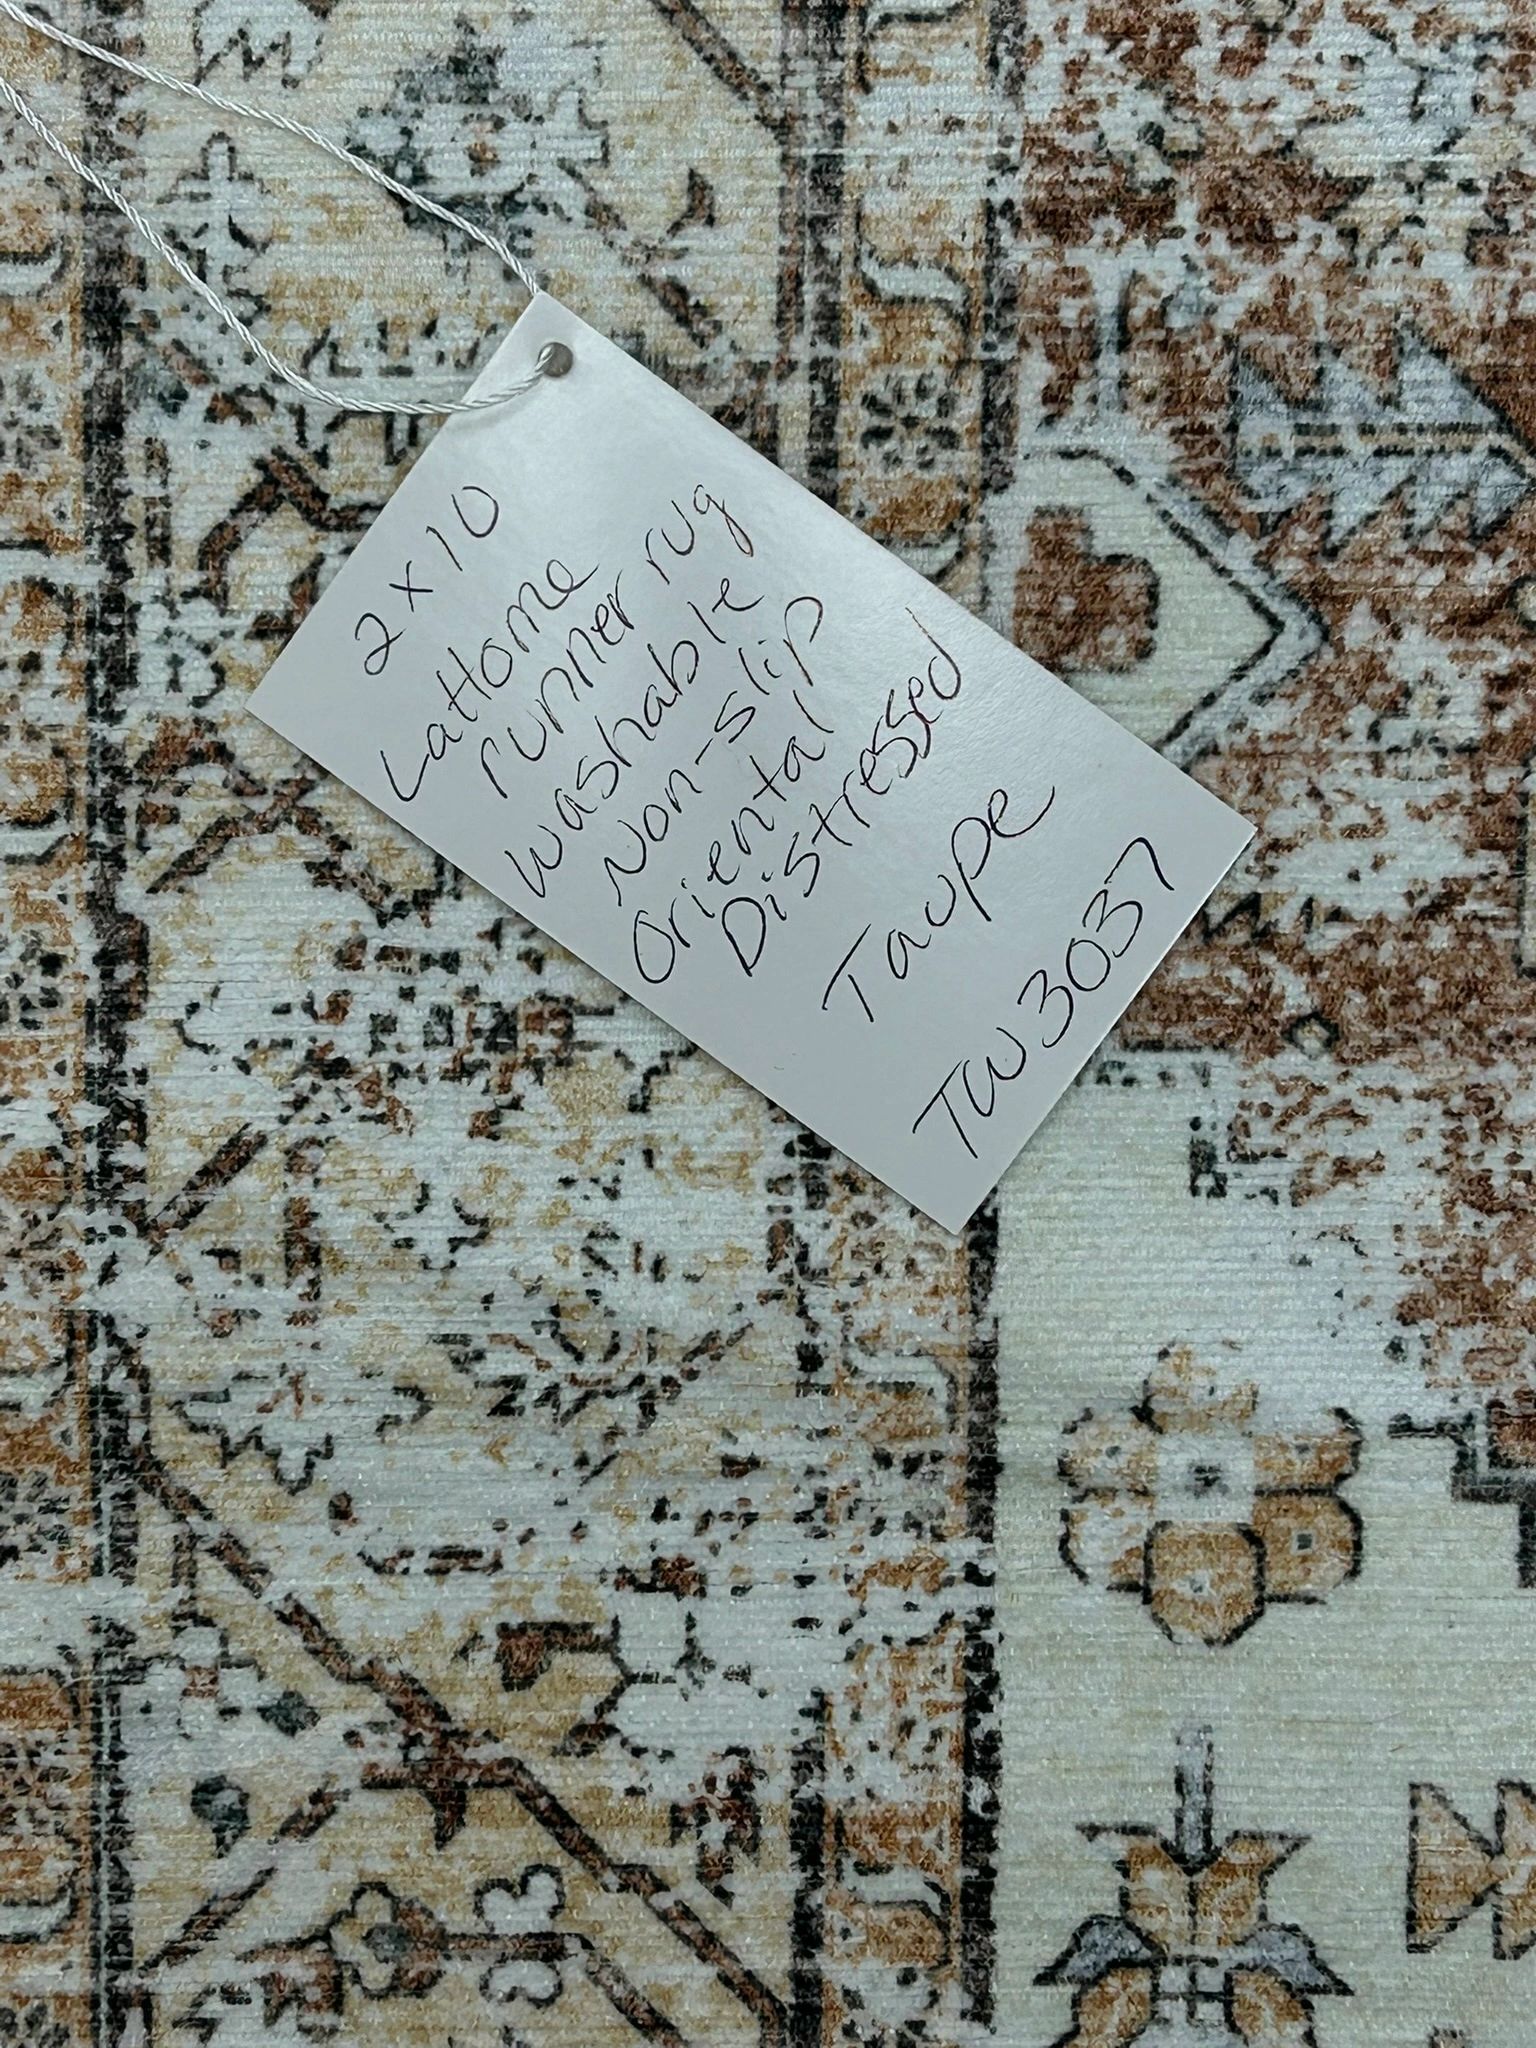 2 x 10
LaHome
runner rug
washable
Non-slip
Oriental
Distressed
Taupe
TW3037